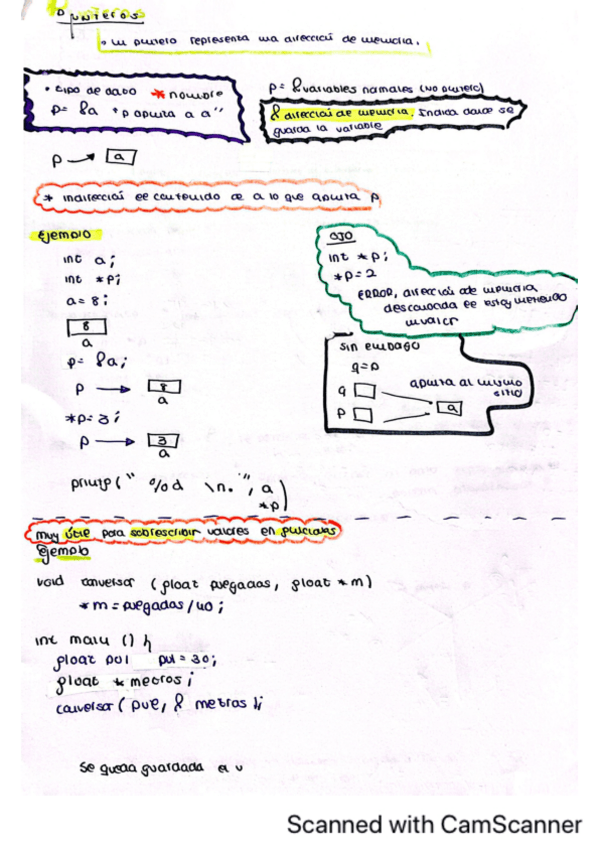 Punteros
• un puntero representa una dirección de memoria.
• tipo de dato * nombre
p= &a "p apunta a a"
p= &variables normales (no puntero)
& dirección de memoria. Indica donde se
guarda la variable
p → a
* indirección el contenido de a lo que apunta p
Ejemplo
int a;
int *p;
a=8;
8
a
p= &a;
p → 8
a
*p=3;
p → 3
a
printf(" %d \n.", a)
*p
OJO
int *p;
*p=2
ERROR, dirección de memoria
desconocida le estoy metiendo
un valor
sin embago
q=p
q
p
apunta al mismo
sitio
a
muy útil para sobrescribir valores en funciones
Ejemplo
void conversor (float pulgadas, float *m)
*m = pulgadas/40;
int main () {
float pul pul=30;
float * metros;
conversor (pul, & metros );
Se queda guardada el v
Scanned with CamScanner